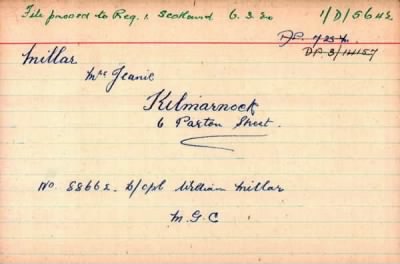 File passed to Reg. 1. Scotland 6.3.20 1/D/5642
D.P. 7254.
D.P. 3/14157
Millar
Mrs Jeanie
Kilmarnock
6 Paxton Street.
No. 88662. D/Cpl William Millar
M.G.C